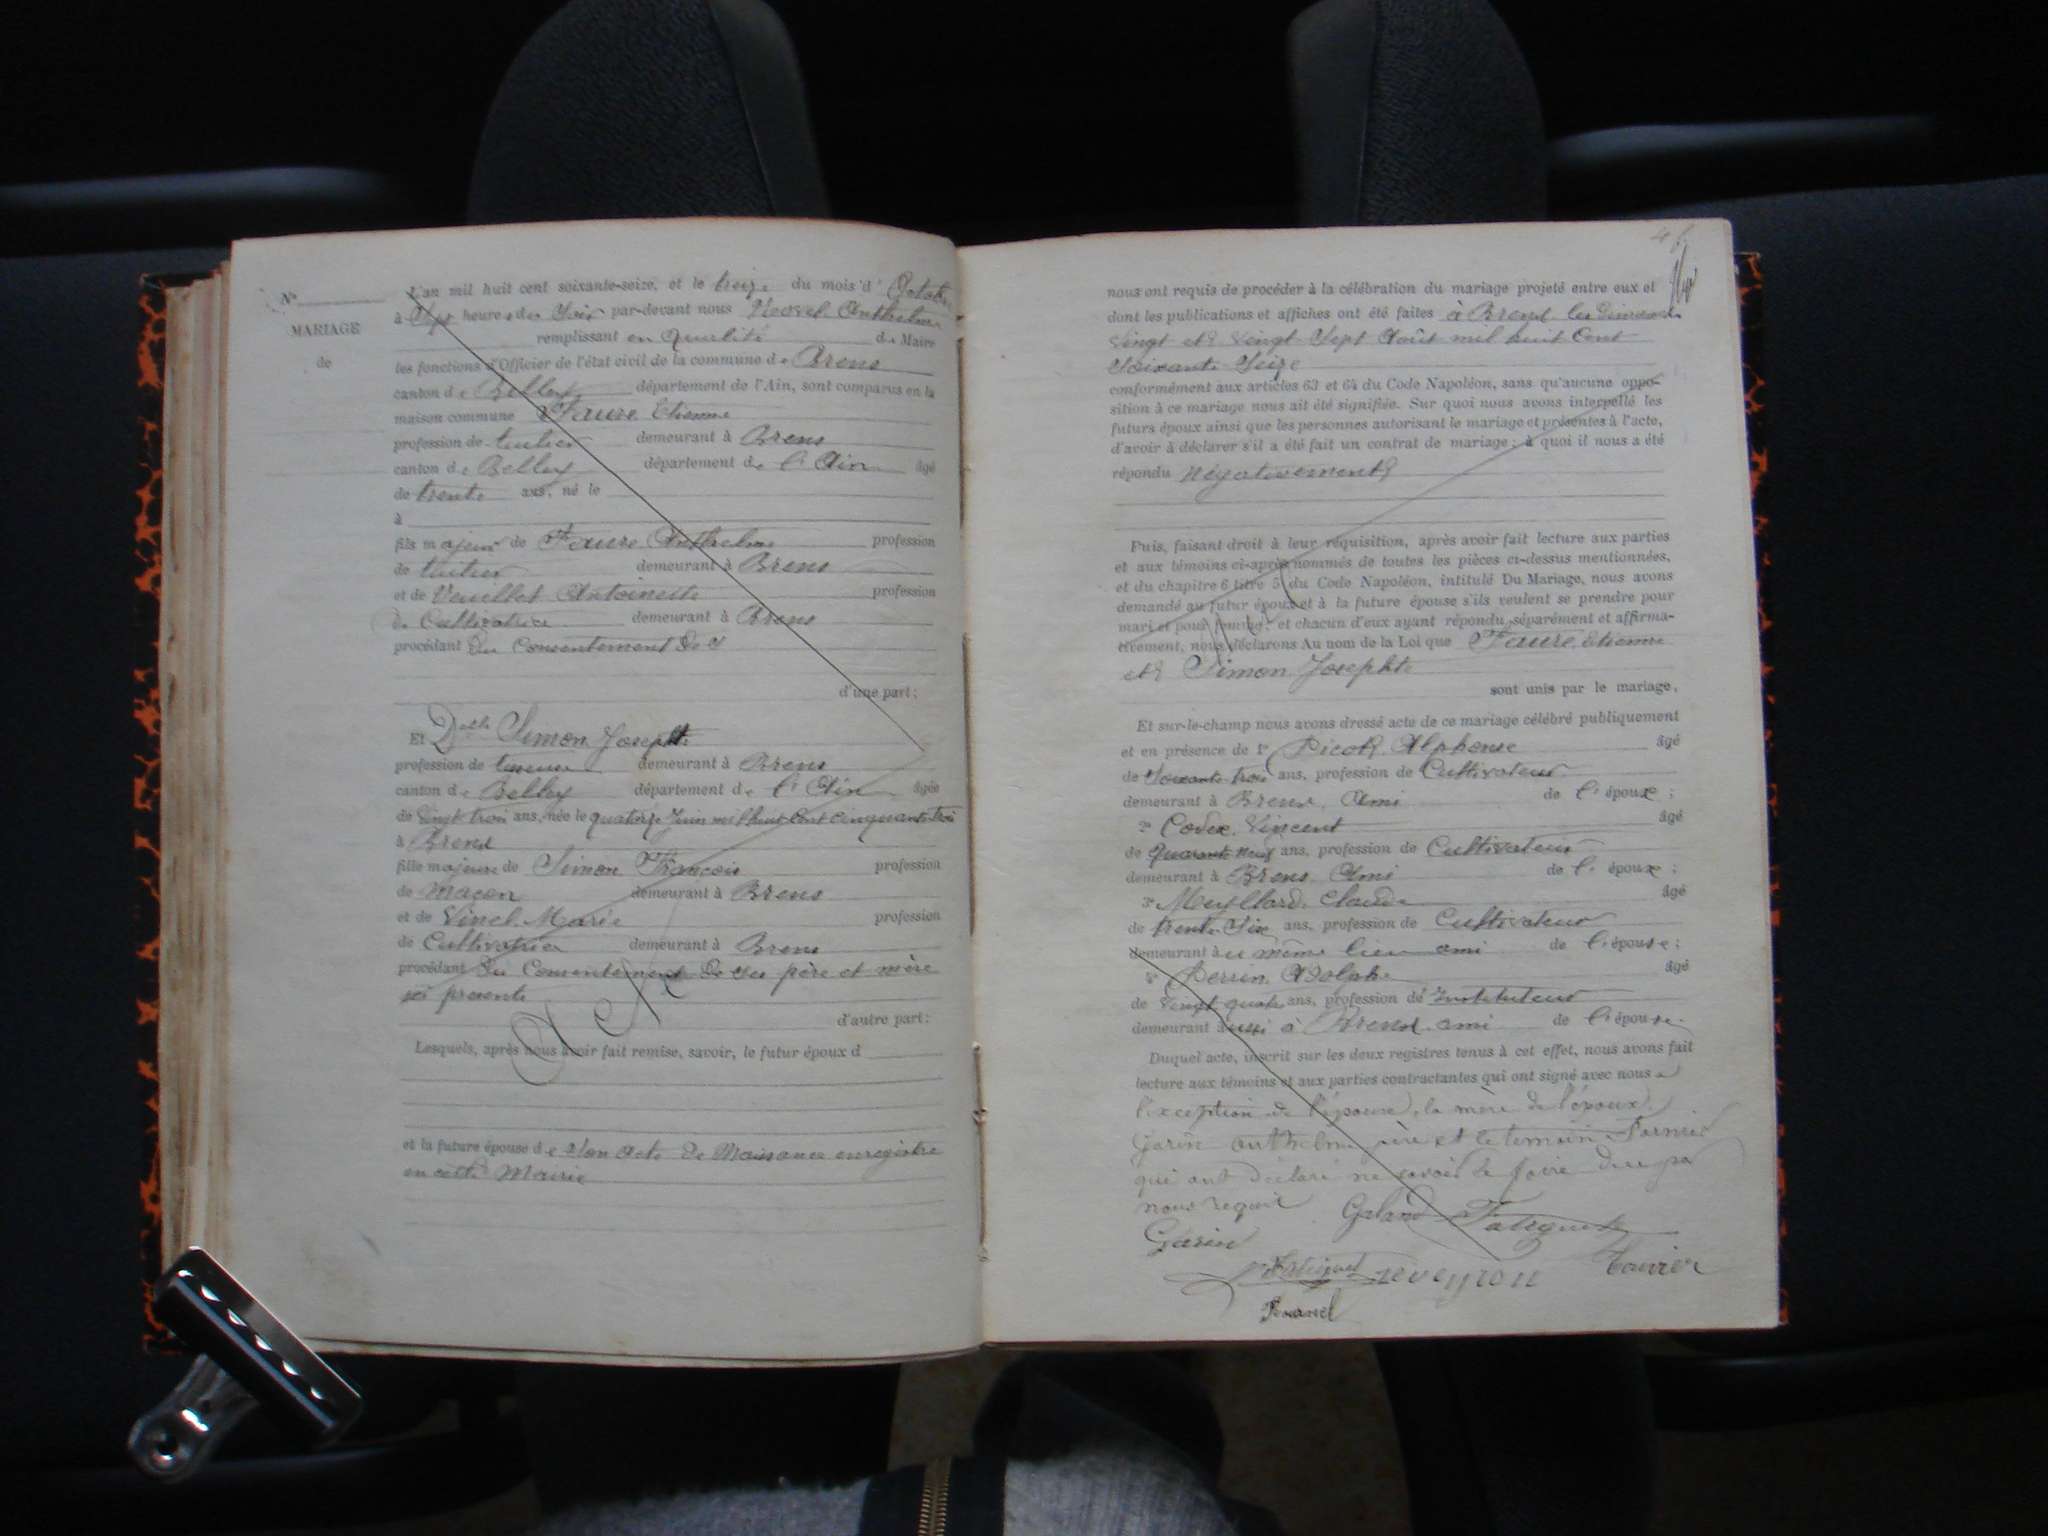 N°
MARIAGE
de
L'an mil huit cent soixante-seize, et le treize du mois d' Octobre
à Sept heures du Soir par-devant nous Anthelme
remplissant en qualité de Maire
les fonctions d'Officier de l'état civil de la commune de Brens
canton de Belley département de l'Ain, sont comparus en la
maison commune Faure Etienne
profession de tuilier demeurant à Brens
canton de Belley département de l'Ain âgé
de trente ans, né le
à
fils majeur de Faure Anthelme profession
de tuilier demeurant à Brens
et de Veuillet Antoinette profession
de Cultivatrice demeurant à Brens
procédant du Consentement de s
d'une part;
Et Delle Simon Josephte
profession de demeurant à Brens
canton de Belley département de l'Ain âgée
de vingt trois ans, née le quatorze Juin mil huit cent cinquante trois
à Brens
fille majeure de Simon François profession
de Maçon demeurant à Brens
et de Vinel Marie profession
de Cultivatrice demeurant à Brens
procédant du Consentement de ses père et mère
ici presents
d'autre part:
Lesquels, après nous avoir fait remise, savoir, le futur époux d
et la future épouse de son acte de Naissance enregistré
en cette Mairie
nous ont requis de procéder à la célébration du mariage projeté entre eux et
dont les publications et affiches ont été faites à Brens les dimanches
vingt et vingt Sept Août mil huit Cent
Soixante Seize
conformément aux articles 63 et 64 du Code Napoléon, sans qu'aucune oppo-
sition à ce mariage nous ait été signifiée. Sur quoi nous avons interpellé les
futurs époux ainsi que les personnes autorisant le mariage et présentes à l'acte,
d'avoir à déclarer s'il a été fait un contrat de mariage; à quoi il nous a été
répondu négativement
Puis, faisant droit à leur réquisition, après avoir fait lecture aux parties
et aux témoins ci-après nommés de toutes les pièces ci-dessus mentionnées,
et du chapitre 6 titre 5 du Code Napoléon, intitulé Du Mariage, nous avons
demandé au futur époux et à la future épouse s'ils veulent se prendre pour
mari et pour femme: et chacun d'eux ayant répondu séparément et affirma-
tivement, nous déclarons Au nom de la Loi que Faure Etienne
et Simon Josephte
sont unis par le mariage,
Et sur-le-champ nous avons dressé acte de ce mariage célébré publiquement
et en présence de 1° Picot Alphonse âgé
de Soixante trois ans, profession de Cultivateur
demeurant à Brens, Ami de l'époux;
2° Codex Vincent âgé
de quarante neuf ans, profession de Cultivateur
demeurant à Brens Ami de l'époux;
3° Meyllard Claude âgé
de trente Six ans, profession de Cultivateur
demeurant au même lieu ami de l'épouse;
4° Perrin Adolphe âgé
de vingt quatre ans, profession de Instituteur
demeurant aussi à Brens ami de l'épouse.
Duquel acte, inscrit sur les deux registres tenus à cet effet, nous avons fait
lecture aux témoins et aux parties contractantes qui ont signé avec nous à
l'exception de l'épouse, la mère de l'époux,
Garin anthelme père et le temoin
qui ont déclaré ne savoir le faire de ce par
nous requis Galand Falcquet
Garin
Falcquet Neveyron Tavier
Fournel